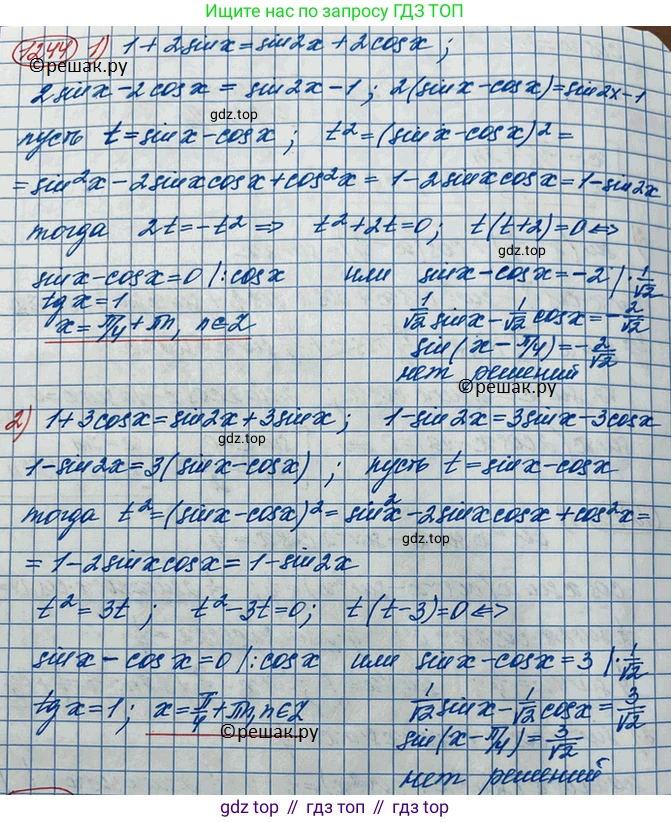 Ищите нас по запросу ГДЗ ТОП
1244 1) 1+2sinx=sin2x+2cosx;
©решак.ру
2sinx-2cosx=sin2x-1; 2(sinx-cosx)=sin2x-1
gdz.top
пусть t=sinx-cosx; t²=(sinx-cosx)²=
=sin²x-2sinxcosx+cos²x=1-2sinxcosx=1-sin2x
тогда 2t=-t² => t²+2t=0; t(t+2)=0<=>
gdz.top
sinx-cosx=0 |:cosx или sinx-cosx=-2 |·1/√2
tgx=1 1/√2 sinx-1/√2 cosx=-2/√2
x=π/4+πn, n∈Z sin(x-π/4)=-2/√2
нет решений
©решак.ру
2) 1+3cosx=sin2x+3sinx; 1-sin2x=3sinx-3cosx
gdz.top
1-sin2x=3(sinx-cosx); пусть t=sinx-cosx
тогда t²=(sinx-cosx)²=sin²x-2sinxcosx+cos²x=
gdz.top
=1-2sinxcosx=1-sin2x
t²=3t; t²-3t=0; t(t-3)=0<=>
sinx-cosx=0 |:cosx или sinx-cosx=3 |·1/√2
tgx=1; x=π/4+πn, n∈Z 1/√2 sinx-1/√2 cosx=3/√2
©решак.ру
sin(x-π/4)=3/√2
нет решений
gdz.top // гдз.топ // gdz.top